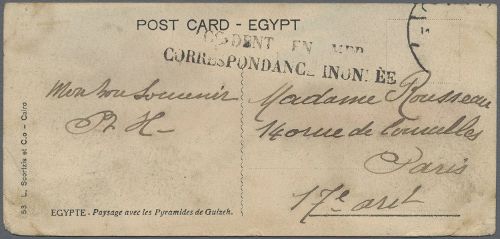 POST CARD - EGYPT
ACCIDENT EN MER
CORRESPONDANCE INONDÉE
Mon bon Souvenir
P. H-
Madame Rousseau
14 rue de
Paris
17e arrt
EGYPTE - Paysage avec les Pyramides de Guizeh.
53 L. Scortzis et C.o - Cairo